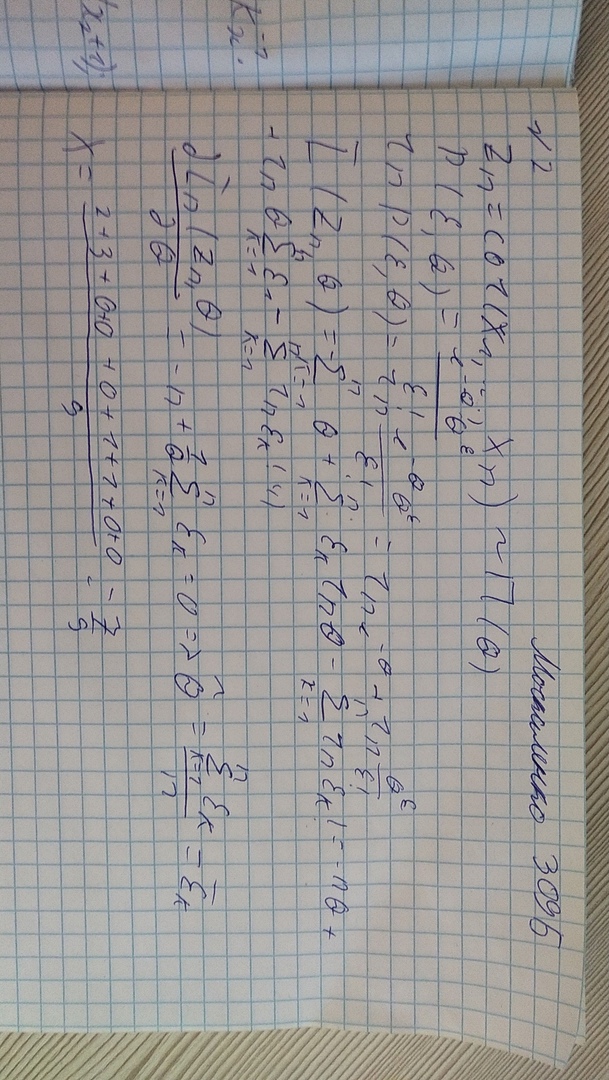 √2 Москаленко 309Б
Z_n = col(X_1, ..., X_n) ~ Π(θ)
P(ε, θ) = e^{-θ} θ^ε / ε!
ln P(ε, θ) = ln e^{-θ} θ^ε / ε! = ln e^{-θ} + ln θ^ε / ε!
L̄(Z_n, θ) = -∑_{k=1}^n θ + ∑_{k=1}^n ε_k ln θ - ∑_{k=1}^n ln ε_k! = -nθ +
+ ln θ ∑_{k=1}^n ε_1 - ∑_{k=1}^n ln ε_k!
∂L̄_n(Z_n, θ) / ∂θ = -n + 1/θ ∑_{k=1}^n ε_k = 0 => θ̂ = ∑_{k=1}^n ε_k / n = ε̄_k
X = 2+3+0+0+0+1+1+0+0 / 9 = 7/9
(x_2+1);